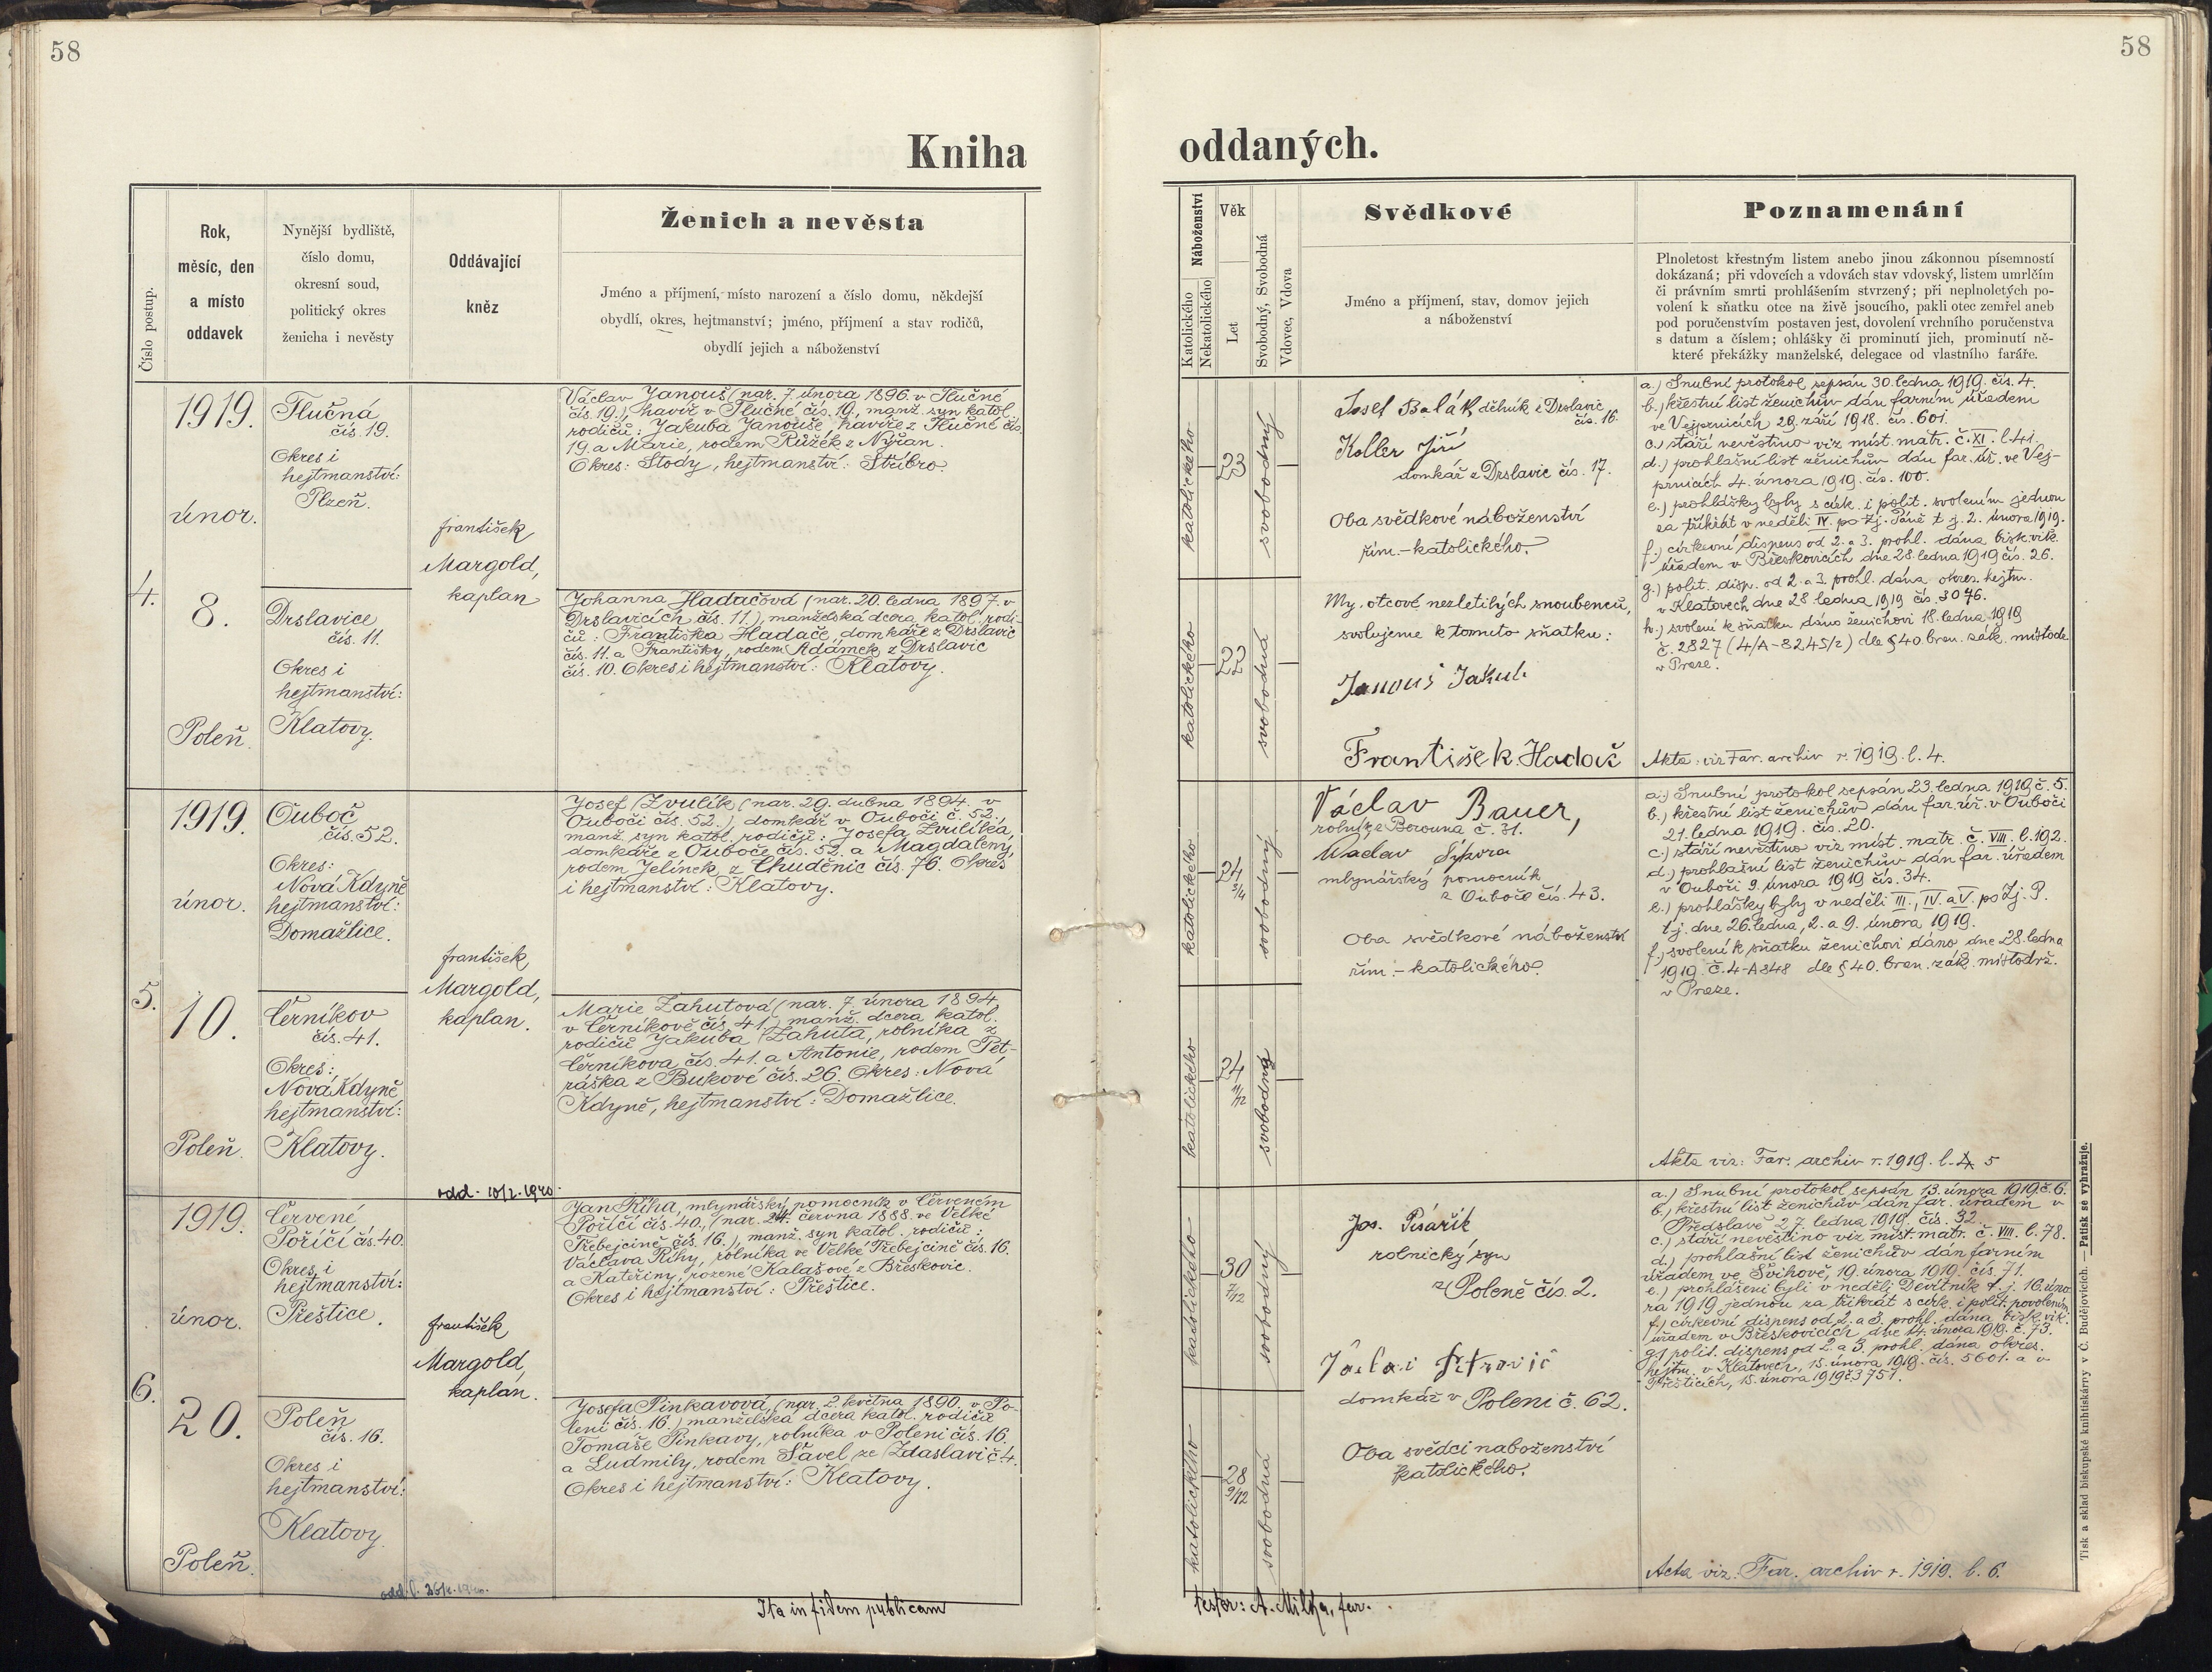 58
58
Kniha
oddaných.
Číslo postup.
Rok,
měsíc, den
a místo
oddavek
Nynější bydliště,
číslo domu,
okresní soud,
politický okres
ženicha i nevěsty
Oddávající
kněz
Ženich a nevěsta
Jméno a příjmení, místo narození a číslo domu, někdejší
obydlí, okres, hejtmanství; jméno, příjmení a stav rodičů,
obydlí jejich a náboženství
Náboženství
Katolického
Nekatolického
Věk
Let
Svobodný, Svobodná
Vdovec, Vdova
Svědkové
Jméno a příjmení, stav, domov jejich
a náboženství
Poznamenání
Plnoletost křestným listem anebo jinou zákonnou písemností
dokázaná; při vdovcích a vdovách stav vdovský, listem umrlčím
či právním smrti prohlášením stvrzený; při neplnoletých po-
volení k sňatku otce na živě jsoucího, pakli otec zemřel aneb
pod poručenstvím postaven jest, dovolení vrchního poručenstva
s datum a číslem; ohlášky či prominutí jich, prominutí ně-
které překážky manželské, delegace od vlastního faráře.
4.
1919.
únor.
8.
Poleň.
Tlučná
čís. 19.
Okres i
hejtmanství:
Plzeň.
Drslavice
čís. 11.
Okres i
hejtmanství:
Klatovy.
František
Margold,
kaplan
Václav Janouš (nar. 7. února 1896. v Tlučné
čís. 19.), havíř v Tlučné čís. 19., manž. syn katol.
rodičů: Jakuba Janouše, havíře z Tlučné čís.
19. a Marie, rodem Růžek z Nýřan.
Okres: Stody, hejtmanství: Stříbro.
Johanna Hadačová (nar. 20. ledna 1897. v
Drslavicích čís. 11.), manželská dcera katol. rodi-
čů: Františka Hadače, domkáře z Drslavic
čís. 11. a Františky, rodem Adámek z Drslavic
čís. 10. Okres i hejtmanství: Klatovy.
katolického
23
svobodný
katolického
22
svobodná
Josef Balák dělník z Drslavic
čís. 16.
Koller Jiří
domkář z Drslavic čís. 17.
Oba svědkové náboženství
řím.-katolického.
My, otcové nezletilých snoubenců,
svolujeme k tomuto sňatku:
Janouš Jakub
František Hadač
a.) Snubní protokol sepsán 30. ledna 1919. čís. 4.
b.) křestní list ženichův dán farním úřadem
ve Vejprnicích 29. září 1918. čís. 601.
c.) stáří nevěstino viz míst. matr. č. XI. l. 41.
d.) prohlašní list ženichův dán far. úř. ve Vej-
prnicích 4. února 1919. čís. 100.
e.) prohlášky byly s círk. i polit. svolením jednou
za třikrát v neděli IV. po Zj. Páně t. j. 2. února 1919.
f.) církevní dispens od 2. a 3. prohl. dána bisk. vik.
úřadem v Břeskovicích dne 28. ledna 1919 čís. 26.
g.) polit. disp. od 2. a 3. prohl. dána okres. hejtm.
v Klatovech dne 28 ledna 1919 čís. 3076.
h.) svolení k sňatku dáno ženichovi 18. ledna 1919
č. 2827 (4/A-8245/2) dle § 40 bran. zák. místodr.
v Praze.
Akta: viz Far. archiv r. 1919. l. 4.
5.
1919.
únor.
10.
Poleň.
Ouboč
čís. 52.
Okres:
Nová Kdyně
hejtmanství:
Domažlice.
Černíkov
čís. 41.
Okres:
Nová Kdyně
hejtmanství:
Klatovy.
František
Margold,
kaplan.
odd. 10/2. 1940.
Josef Zvulík (nar. 29. dubna 1894. v
Ouboči čís. 52.), domkář v Ouboči č. 52.,
manž. syn katol. rodičů: Josefa Zvulíka,
domkáře z Ouboče čís. 52. a Magdaleny,
rodem Jelínek z Chuděnic čís. 76. Okres
i hejtmanství: Klatovy.
Marie Zahutová (nar. 7. února 1894.
v Černíkově čís. 41.) manž. dcera katol.
rodičů Jakuba Zahuta, rolníka z
Černíkova čís. 41. a Antonie, rodem Pet-
ráška z Bukové čís. 26. Okres: Nová
Kdyně, hejtmanství: Domažlice.
katolického
24
3/4
svobodný
katolického
24
11/12
svobodná
Václav Bauer,
rolník z Berouna č. 31.
Vaclav Sýkora
mlynářský pomocník
z Ouboče čís. 43.
Oba svědkové náboženství
řím.-katolického.
a.) Snubní protokol sepsán 23. ledna 1919 č. 5.
b.) křestní list ženichův dán far. úř. v Ouboči
21. ledna 1919. čís. 20.
c.) stáří nevěstino viz míst. matr. č. VIII. l. 192.
d.) prohlašní list ženichův dán far. úřadem
v Ouboči 9. února 1919 čís. 34.
e.) prohlášky byly v neděli III., IV. a V. po Zj. P.
t. j. dne 26. ledna, 2. a 9. února 1919.
f.) svolení k sňatku ženichovi dáno dne 28. ledna
1919. č. 4-A 848 dle § 40. bran. zák. místodrž.
v Praze.
Akta viz: Far. archiv r. 1919. l. 5
6.
1919.
únor.
20.
Poleň.
Červené
Poříčí čís 40.
Okres i
hejtmanství:
Přeštice.
Poleň
čís. 16.
Okres i
hejtmanství:
Klatovy.
František
Margold,
kaplan.
Jan Říha, mlynářský pomocník v Červeném
Poříčí čís. 40., (nar. 24. června 1888. ve Velké
Třebejcině čís. 16.), manž. syn katol. rodičů:
Václava Říhy, rolníka ve Velké Třebejcině čís. 16.
a Kateřiny, rozené Kalašové z Břeskovic.
Okres i hejtmanství: Přeštice.
Josefa Pinkavová, (nar. 2. května 1890. v Po-
leni čís. 16.) manželská dcera katol. rodičů
Tomáše Pinkavy, rolníka v Poleni čís. 16.
a Ludmily, rodem Šavel ze Zdaslavi č. 4.
Okres i hejtmanství: Klatovy.
katolického
30
7/12
svobodný
katolického
28
9/12
svobodná
Jos. Pisařík
rolnický syn
z Poleně čís. 2.
domkář v Poleni č. 62.
Oba svědci naboženství
katolického.
a.) Snubní protokol sepsán 13. února 1919 č. 6.
b.) křestní list ženichův dán far. úřadem v
Předslavě 27. ledna 1919. čís. 32.
c.) stáří nevěstino viz míst. matr. č. VIII. l. 78.
d.) prohlašní list ženichův dán farním
úřadem ve Švihově, 19. února 1919, čís. 71.
e.) prohlášeni byli v neděli Devítník t. j. 16. úno-
ra 1919 jednou za třikrát s círk. i polit. povolením.
f.) církevní dispens od 2. a 3. prohl. dána bisk. vik.
úřadem v Břeskovicích, dne 14. února 1919. č. 73.
g.) polit. dispens od 2. a 3. prohl. dána okres.
hejtm. v Klatovech, 15. února 1919. čís. 5601. a v
Přešticích, 15. února 1919 č. 3751.
Acta viz: Far. archiv r. 1919. l. 6.
Ita in fidem publicam
testor: A. Milka, far.
Tisk a sklad biskupské knihtiskárny v Č. Budějovicích. — Patisk se vyhražuje.